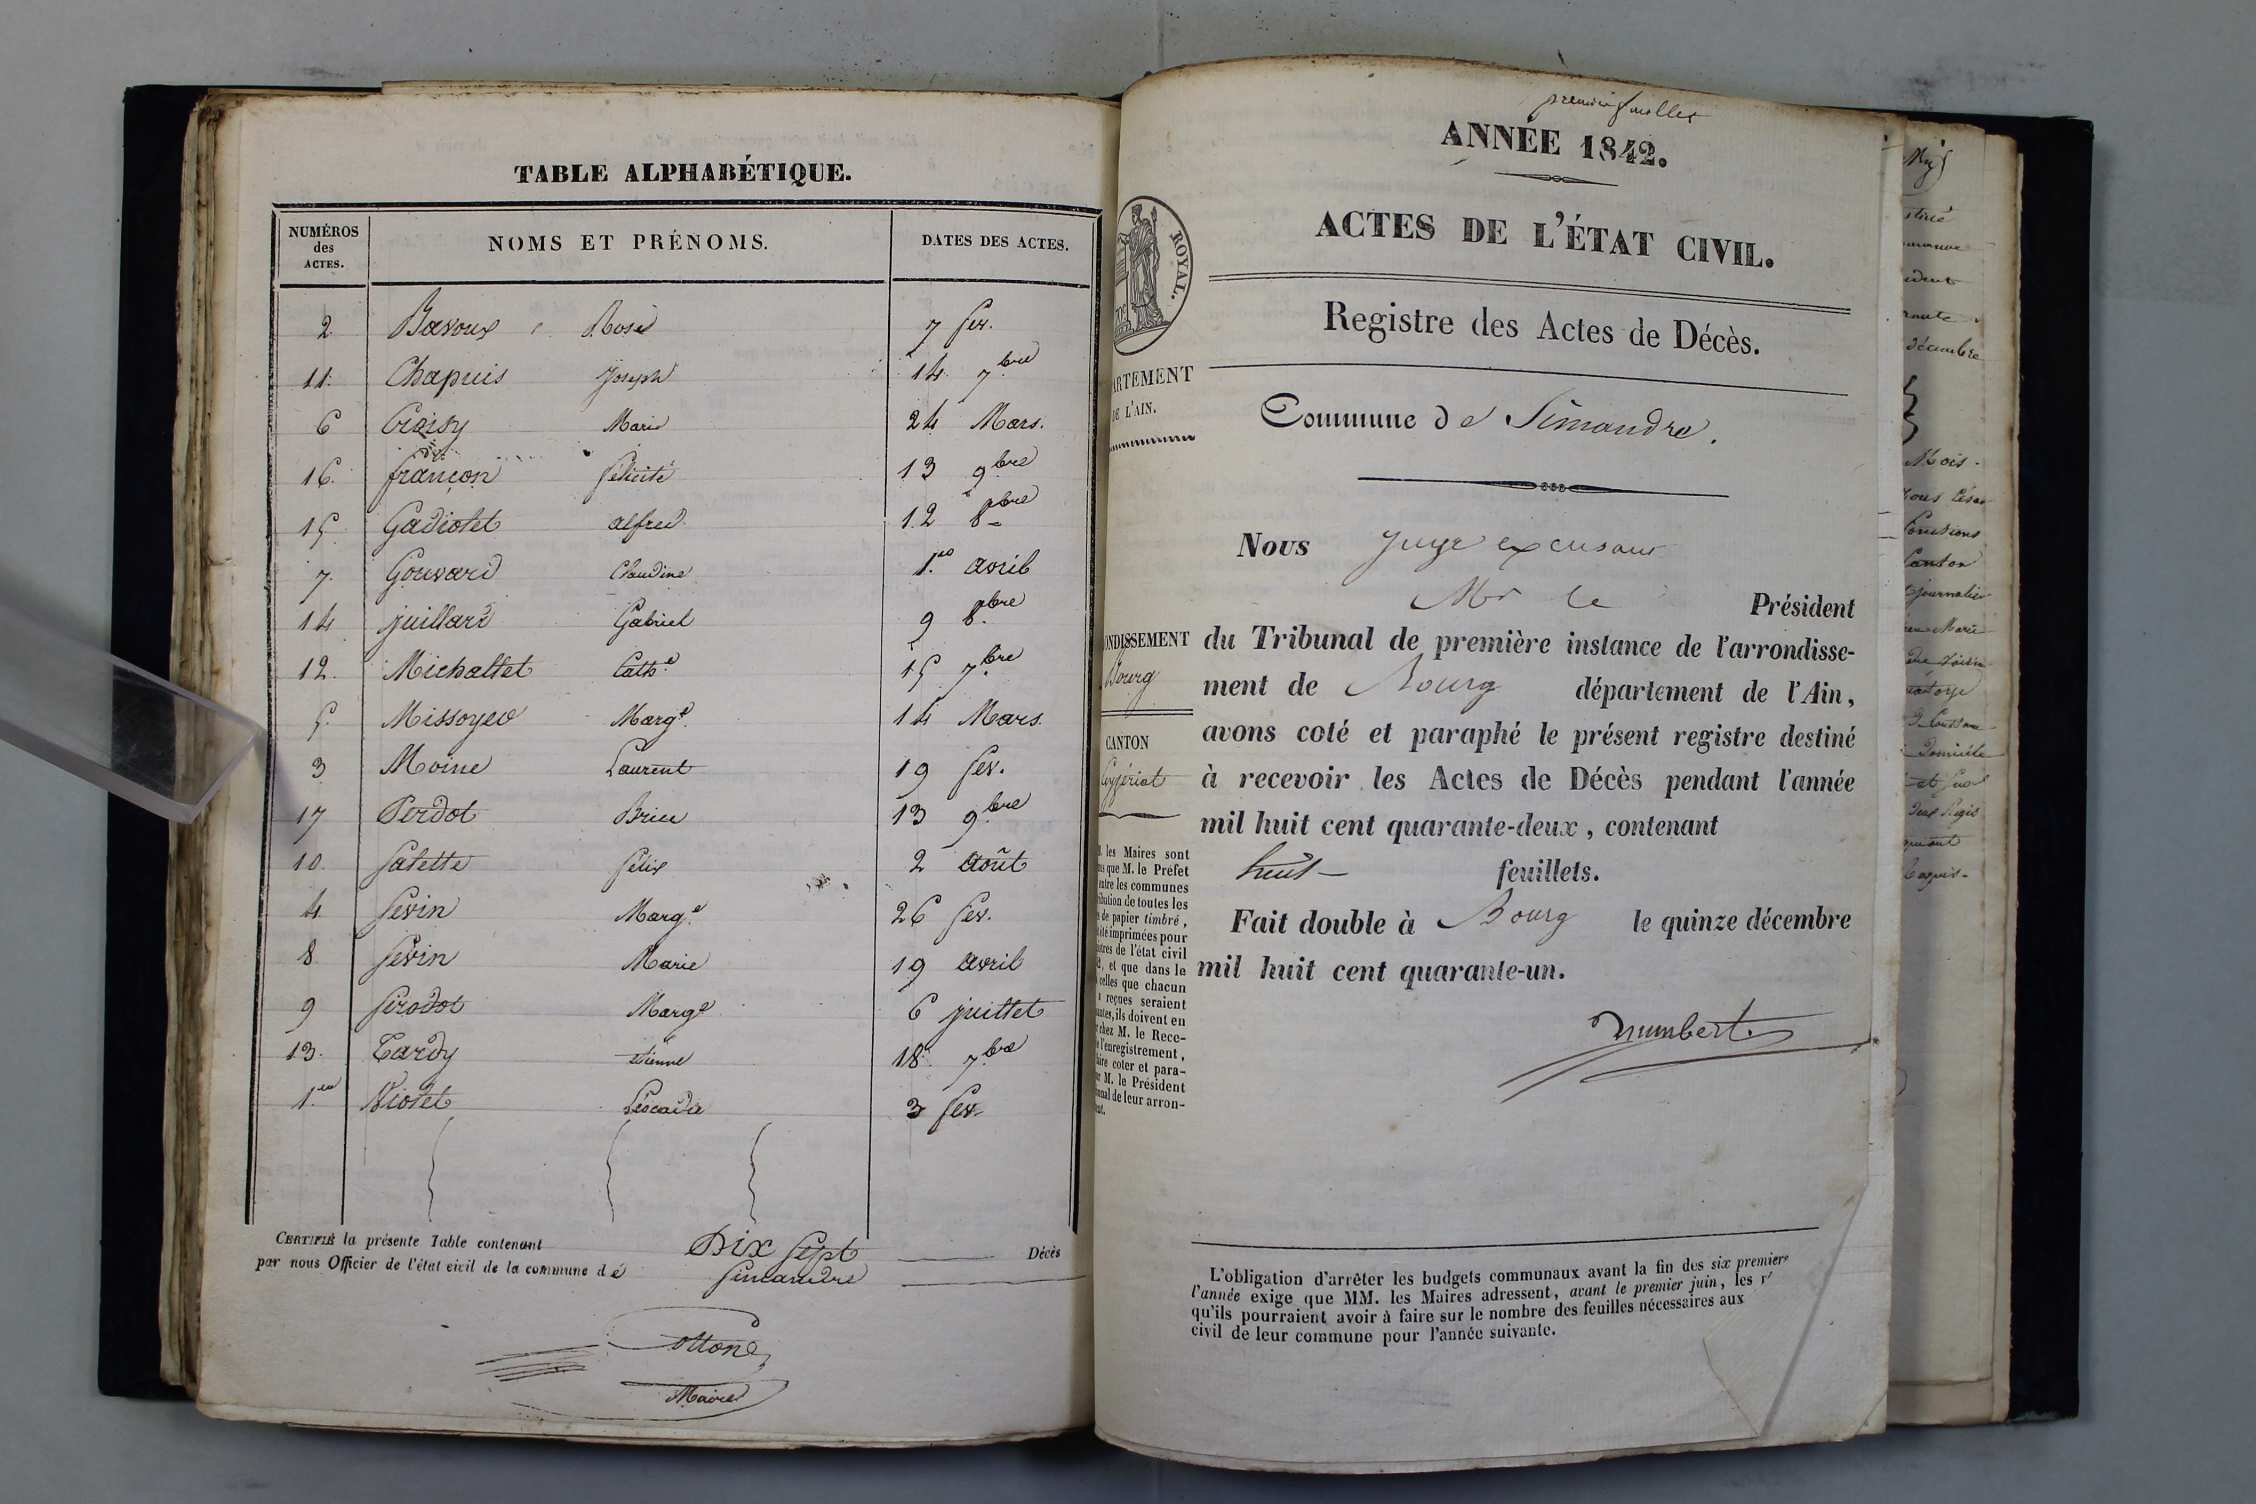 TABLE ALPHABÉTIQUE.
NUMÉROS
des
ACTES.
NOMS ET PRÉNOMS.
DATES DES ACTES.
2 Bavoux Rosé 7 fev.
11. Chapuis Joseph 14 7.bre
6 Croisy Marie 24 Mars.
16. françon félicité 13 9bre
15 Gadiolet alfred 12 8bre
7. Gouvard Claudine 1.er avril
14 juillard Gabriel 9 8.bre
12. Michallet Cath.e 15 7.bre
5. Missoyer Marg.e 14 Mars.
3 Moine Laurent 19 fev.
17 Perdot Brice 13 9.bre
10. Salette félix 2 Août
4. Sevin Marg.e 26 fev.
8 Sevin Marie 19 avril
9 Sirodot Marg.e 6 juillet
13. Tardy etienne 18 7.bre
1.er Violet Léocadie 3 fev.
CERTIFIÉ la présente Table contenant Dix Sept Décès
par nous Officier de l'état civil de la commune de Simandre
Cottone
Maire
premier feuillet
ANNÉE 1842.
ACTES DE L'ÉTAT CIVIL.
ROYAL.
Registre des Actes de Décès.
ARTEMENT
DE L'AIN.
Commune de Simandre.
Nous Juge excusant
Mr le Président
ONDISSEMENT
Bourg
du Tribunal de première instance de l'arrondisse-
ment de Bourg département de l'Ain,
avons coté et paraphé le présent registre destiné
CANTON
Ceyzériat
à recevoir les Actes de Décès pendant l'année
mil huit cent quarante-deux, contenant
huit feuillets.
Fait double à Bourg le quinze décembre
mil huit cent quarante-un.
les Maires sont
que M. le Préfet
entre les communes
ibution de toutes les
de papier timbré,
été imprimées pour
stres de l'état civil
et que dans le
celles que chacun
reçues seraient
antes, ils doivent en
chez M. le Rece-
l'enregistrement,
faire coter et para-
M. le Président
unal de leur arron-
Humbert
L'obligation d'arrêter les budgets communaux avant la fin des six premiers
l'année exige que MM. les Maires adressent, avant le premier juin, les r
qu'ils pourraient avoir à faire sur le nombre des feuilles nécessaires aux
civil de leur commune pour l'année suivante.
décembre
Mois
Canton
journalier
Marie
domicile